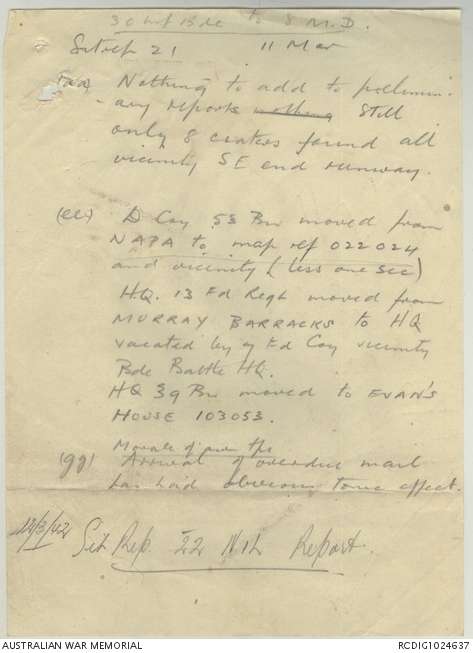 30 Inf Bde to 8 M.D.
Sitrep 21 11 Mar
(aa) Nothing to add to prelimin-
-ary reports nothing Still
only 8 craters found all
vicinity SE end runway.
(ee) D Coy 53 Bn moved from
NAPA to map ref 022024
and vicinity (less one sec)
H.Q. 13 Fd Regt moved from
MURRAY BARRACKS to HQ
vacated by 7 Fd Coy vicinity
Bde Battle HQ.
HQ 39 Bn moved to EVAN'S
HOUSE 103053.
Morale of own tps
(gg) Arrival of overdue mail
has had obvious tonic effect.
12/3/42 Sit Rep. 22 NIL Report.
AUSTRALIAN WAR MEMORIAL RCDIG1024637